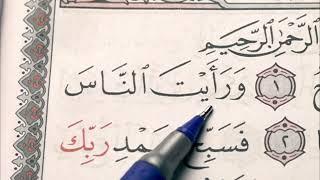 الرَّحْمَٰنِ الرَّحِيمِ
۝١ وَرَأَيْتَ النَّاسَ
۝٢ فَسَبِّحْ بِحَمْدِ رَبِّكَ